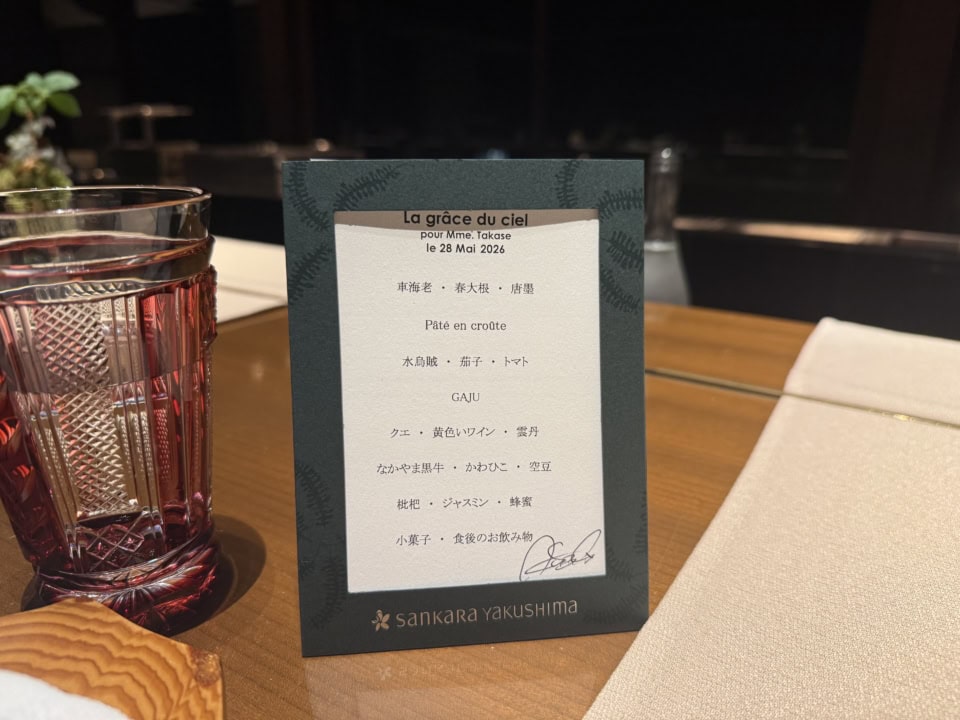 La grâce du ciel
pour Mme. Takase
le 28 Mai 2026
車海老 ・ 春大根 ・ 唐墨
Pâté en croûte
水烏賊 ・ 茄子 ・ トマト
GAJU
クエ ・ 黄色いワイン ・ 雲丹
なかやま黒牛 ・ かわひこ ・ 空豆
枇杷 ・ ジャスミン ・ 蜂蜜
小菓子 ・ 食後のお飲み物
saNKaRa YaKUSHIMa